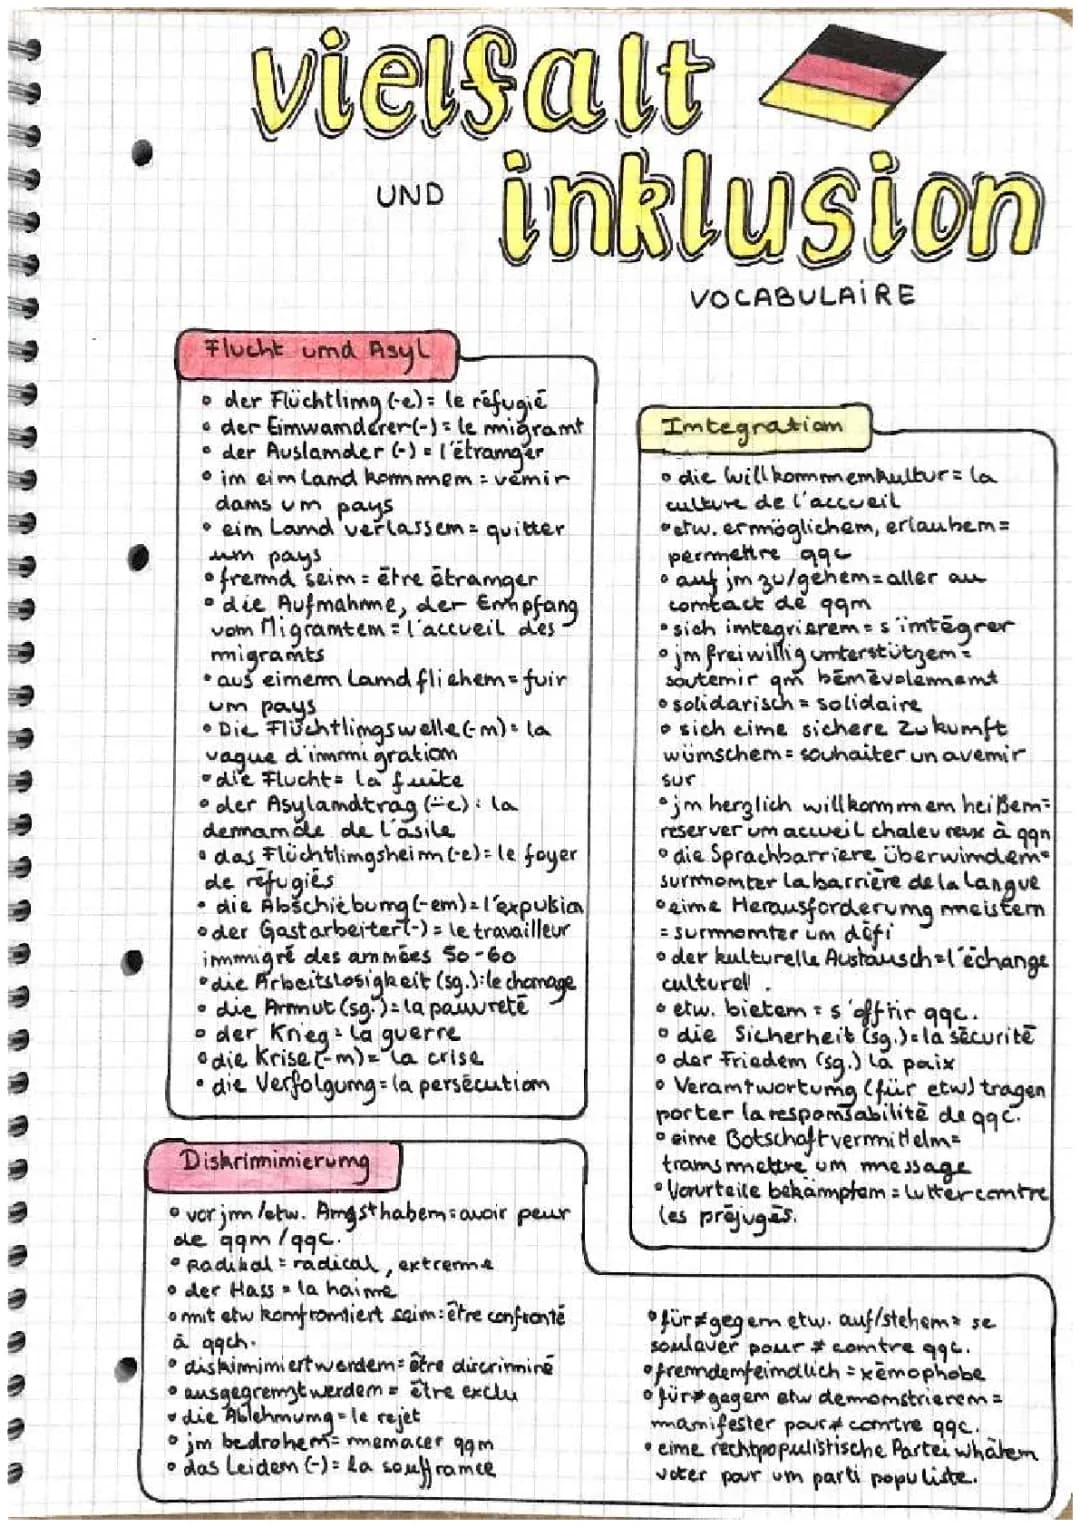 vielfalt
UND inklusion
VOCABULAIRE
Flucht und Asyl
• der Flüchtling (-e) = le réfugié
• der Einwanderer (-) = le migrant
• der Auslander (-) = l'étranger
• in ein Land kommen = venir
dans un pays
• ein Land verlassen = quitter
un pays
• fremd sein = être étranger
• die Aufnahme, der Empfang
von Migranten = l'accueil des
migrants
• aus einem Land fliehen = fuir
un pays
• Die Flüchtlingswelle (-n) = la
vague d'immigration
• die Flucht = la fuite
• der Asylandtrag (-̈e) : la
demande de l'asile
• das Flüchtlingsheim (-e) = le foyer
de réfugiés
• die Abschiebung (-en) = l'expulsion
• der Gastarbeiter (-) = le travailleur
immigré des années 50-60
• die Arbeitslosigkeit (sg.) : le chomage
• die Armut (sg.) = la pauvreté
• der Krieg = la guerre
• die Krise (-n) = la crise
• die Verfolgung = la persécution
Integration
• die Willkommenkultur = la
culture de l'accueil
• etw. ermöglichen, erlauben =
permettre qqc
• auf jn zu/gehen = aller au
contact de qqn
• sich integrieren = s'intégrer
• jn freiwillig unterstützen =
soutenir qn bénévolement
• solidarisch = solidaire
• sich eine sichere Zukunft
wünschen = souhaiter un avenir
sur
• jn herzlich willkommen heißen =
reserver un accueil chaleureux à qqn
• die Sprachbarriere überwinden =
surmonter la barrière de la langue
• eine Herausforderung meistern
= surmonter un défi
• der kulturelle Austausch = l'échange
culturel.
• etw. bieten = s'offrir qqc.
• die Sicherheit (sg.) = la sécurité
• der Frieden (sg.) la paix
• Verantwortung (für etw) tragen
porter la responsabilité de qqc.
• eine Botschaft vermitteln =
transmettre un message
• Vorurteile bekämpfen = lutter contre
les préjugés.
Diskriminierung
• vor jm/etw. Angst haben = avoir peur
de qqn/qqc.
• Radikal = radical, extreme
• der Hass = la haine
• mit etw konfrontiert sein = être confronté
à qqch.
• diskiminiert werden = être discriminé
• ausgegrenzt werden = être exclu
• die Ablehnung = le rejet
• jn bedrohen = menacer qqn
• das Leiden (-) = la souffrance
• für ≠ gegen etw. auf/stehen = se
soulaver pour ≠ contre qqc.
• fremdenfeindlich = xénophobe
• für ≠ gegen etw demonstrieren =
manifester pour ≠ contre qqc.
• eine rechtpopulistische Partei whälen
voter pour un parti populiste.